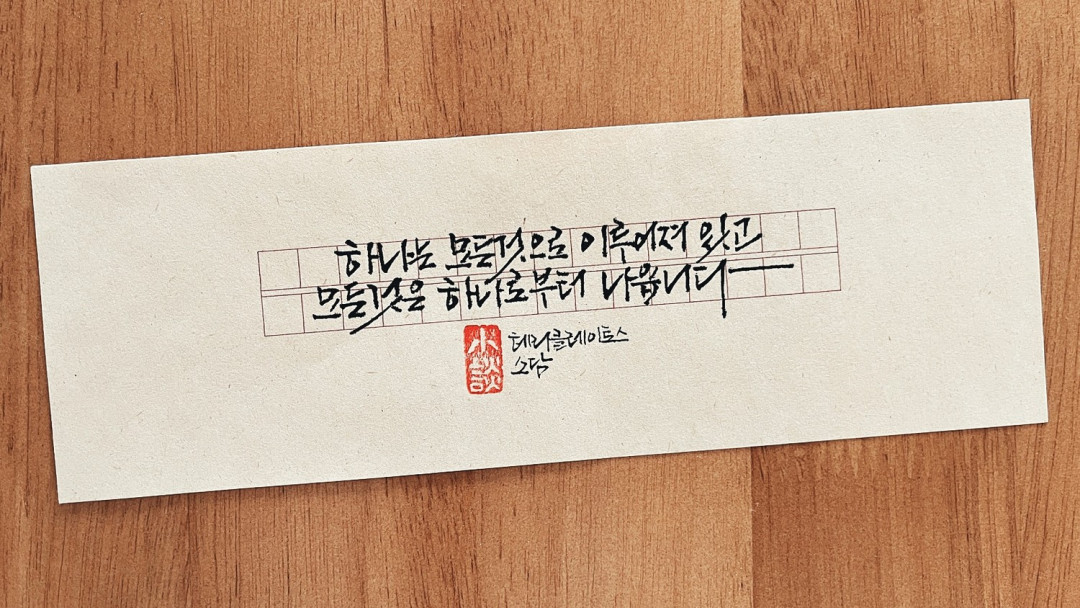 하나는 모든것으로 이루어져 있고
모든것은 하나로부터 나옵니다
小談
헤라클레이토스
소담